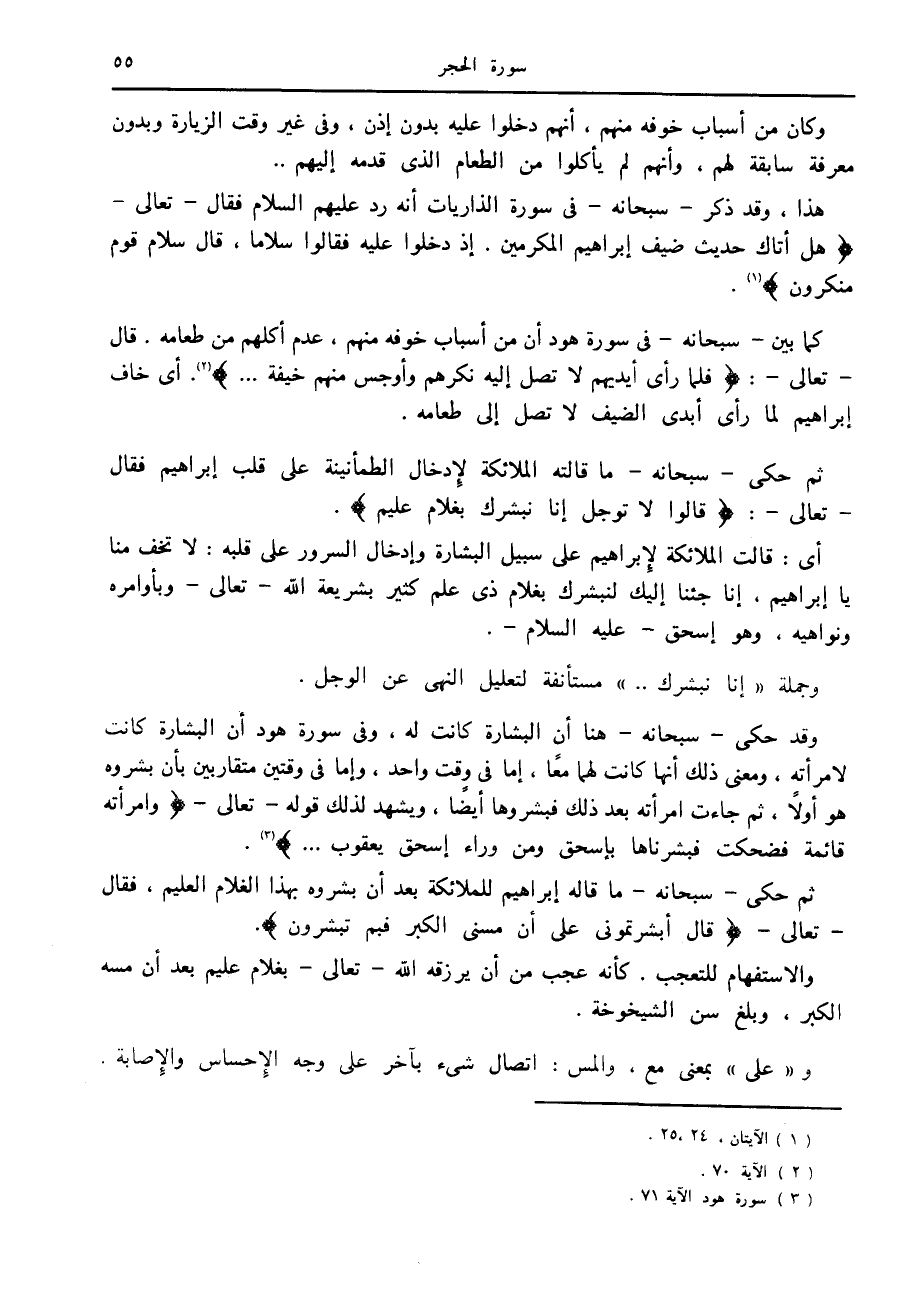 سورة الحجر ٥٥
وكان من أسباب خوفه منهم ، أنهم دخلوا عليه بدون إذن ، وفى غير وقت الزيارة وبدون
معرفة سابقة لهم ، وأنهم لم يأكلوا من الطعام الذى قدمه إليهم ..
هذا ، وقد ذكر - سبحانه - فى سورة الذاريات أنه رد عليهم السلام فقال - تعالى -
﴿ هل أتاك حديث ضيف إبراهيم المكرمين . إذ دخلوا عليه فقالوا سلاما ، قال سلام قوم
منكرون ﴾(١) .
كما بين - سبحانه - فى سورة هود أن من أسباب خوفه منهم ، عدم أكلهم من طعامه . قال
- تعالى - : ﴿ فلما رأى أيديهم لا تصل إليه نكرهم وأوجس منهم خيفة ... ﴾(٢). أى خاف
إبراهيم لما رأى أبدى الضيف لا تصل إلى طعامه .
ثم حكى - سبحانه - ما قالته الملائكة لإدخال الطمأنينة على قلب إبراهيم فقال
- تعالى - : ﴿ قالوا لا توجل إنا نبشرك بغلام عليم ﴾ .
أى : قالت الملائكة لإبراهيم على سبيل البشارة وإدخال السرور على قلبه : لا تخف منا
يا إبراهيم ، إنا جئنا إليك لنبشرك بغلام ذى علم كثير بشريعة الله - تعالى - وبأوامره
ونواهيه ، وهو إسحق - عليه السلام - .
وجملة « إنا نبشرك .. » مستأنفة لتعليل النهى عن الوجل .
وقد حكى - سبحانه - هنا أن البشارة كانت له ، وفى سورة هود أن البشارة كانت
لامرأته ، ومعنى ذلك أنها كانت لهما معًا ، إما فى وقت واحد ، وإما فى وقتين متقاربين بأن بشروه
هو أولًا ، ثم جاءت امرأته بعد ذلك فبشروها أيضًا ، ويشهد لذلك قوله - تعالى - ﴿ وامرأته
قائمة فضحكت فبشرناها بإسحق ومن وراء إسحق يعقوب ... ﴾(٣) .
ثم حكى - سبحانه - ما قاله إبراهيم للملائكة بعد أن بشروه بهذا الغلام العليم ، فقال
- تعالى - ﴿ قال أبشرتمونى على أن مسنى الكبر فبم تبشرون ﴾.
والاستفهام للتعجب . كأنه عجب من أن يرزقه الله - تعالى - بغلام عليم بعد أن مسه
الكبر ، وبلغ سن الشيخوخة .
و « على » بمعنى مع ، والمس : اتصال شىء بآخر على وجه الإحساس والإصابة .
( ١ ) الآيتان ، ٢٤ ،٢٥ .
( ٢ ) الآية ٧٠ .
( ٣ ) سورة هود الآية ٧١ .